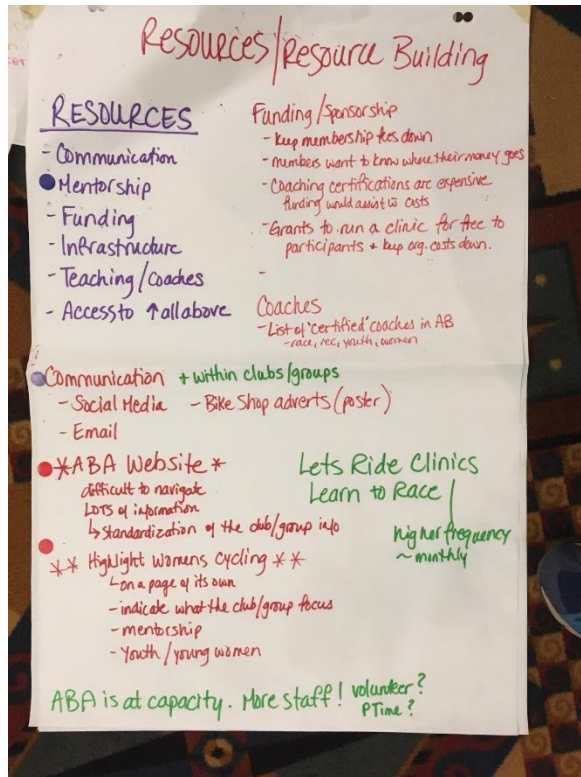 Resources/Resource Building
RESOURCES
- Communication
Mentorship
- Funding
- Infrastructure
- Teaching/Coaches
- Access to ↑ all above
Funding/Sponsorship
- Keep membership fees down
- members want to know where their money goes
- Coaching certifications are expensive
funding would assist w costs
- Grants to run a clinic for free to
participants + keep org. costs down.
-
Coaches
- List of 'certified' coaches in AB
- race, rec, youth, women
Communication + within clubs/groups
- Social Media - Bike Shop adverts (poster)
- Email
*ABA Website *
difficult to navigate
LOTS of information
↳ standardization of the club/group info
** Highlight Womens Cycling **
- on a page of its own
- indicate what the club/group focus
- mentorship
- Youth/young women
Lets Ride Clinics
Learn to Race
higher frequency
~ monthly
ABA is at capacity. More staff! volunteer?
PTime?